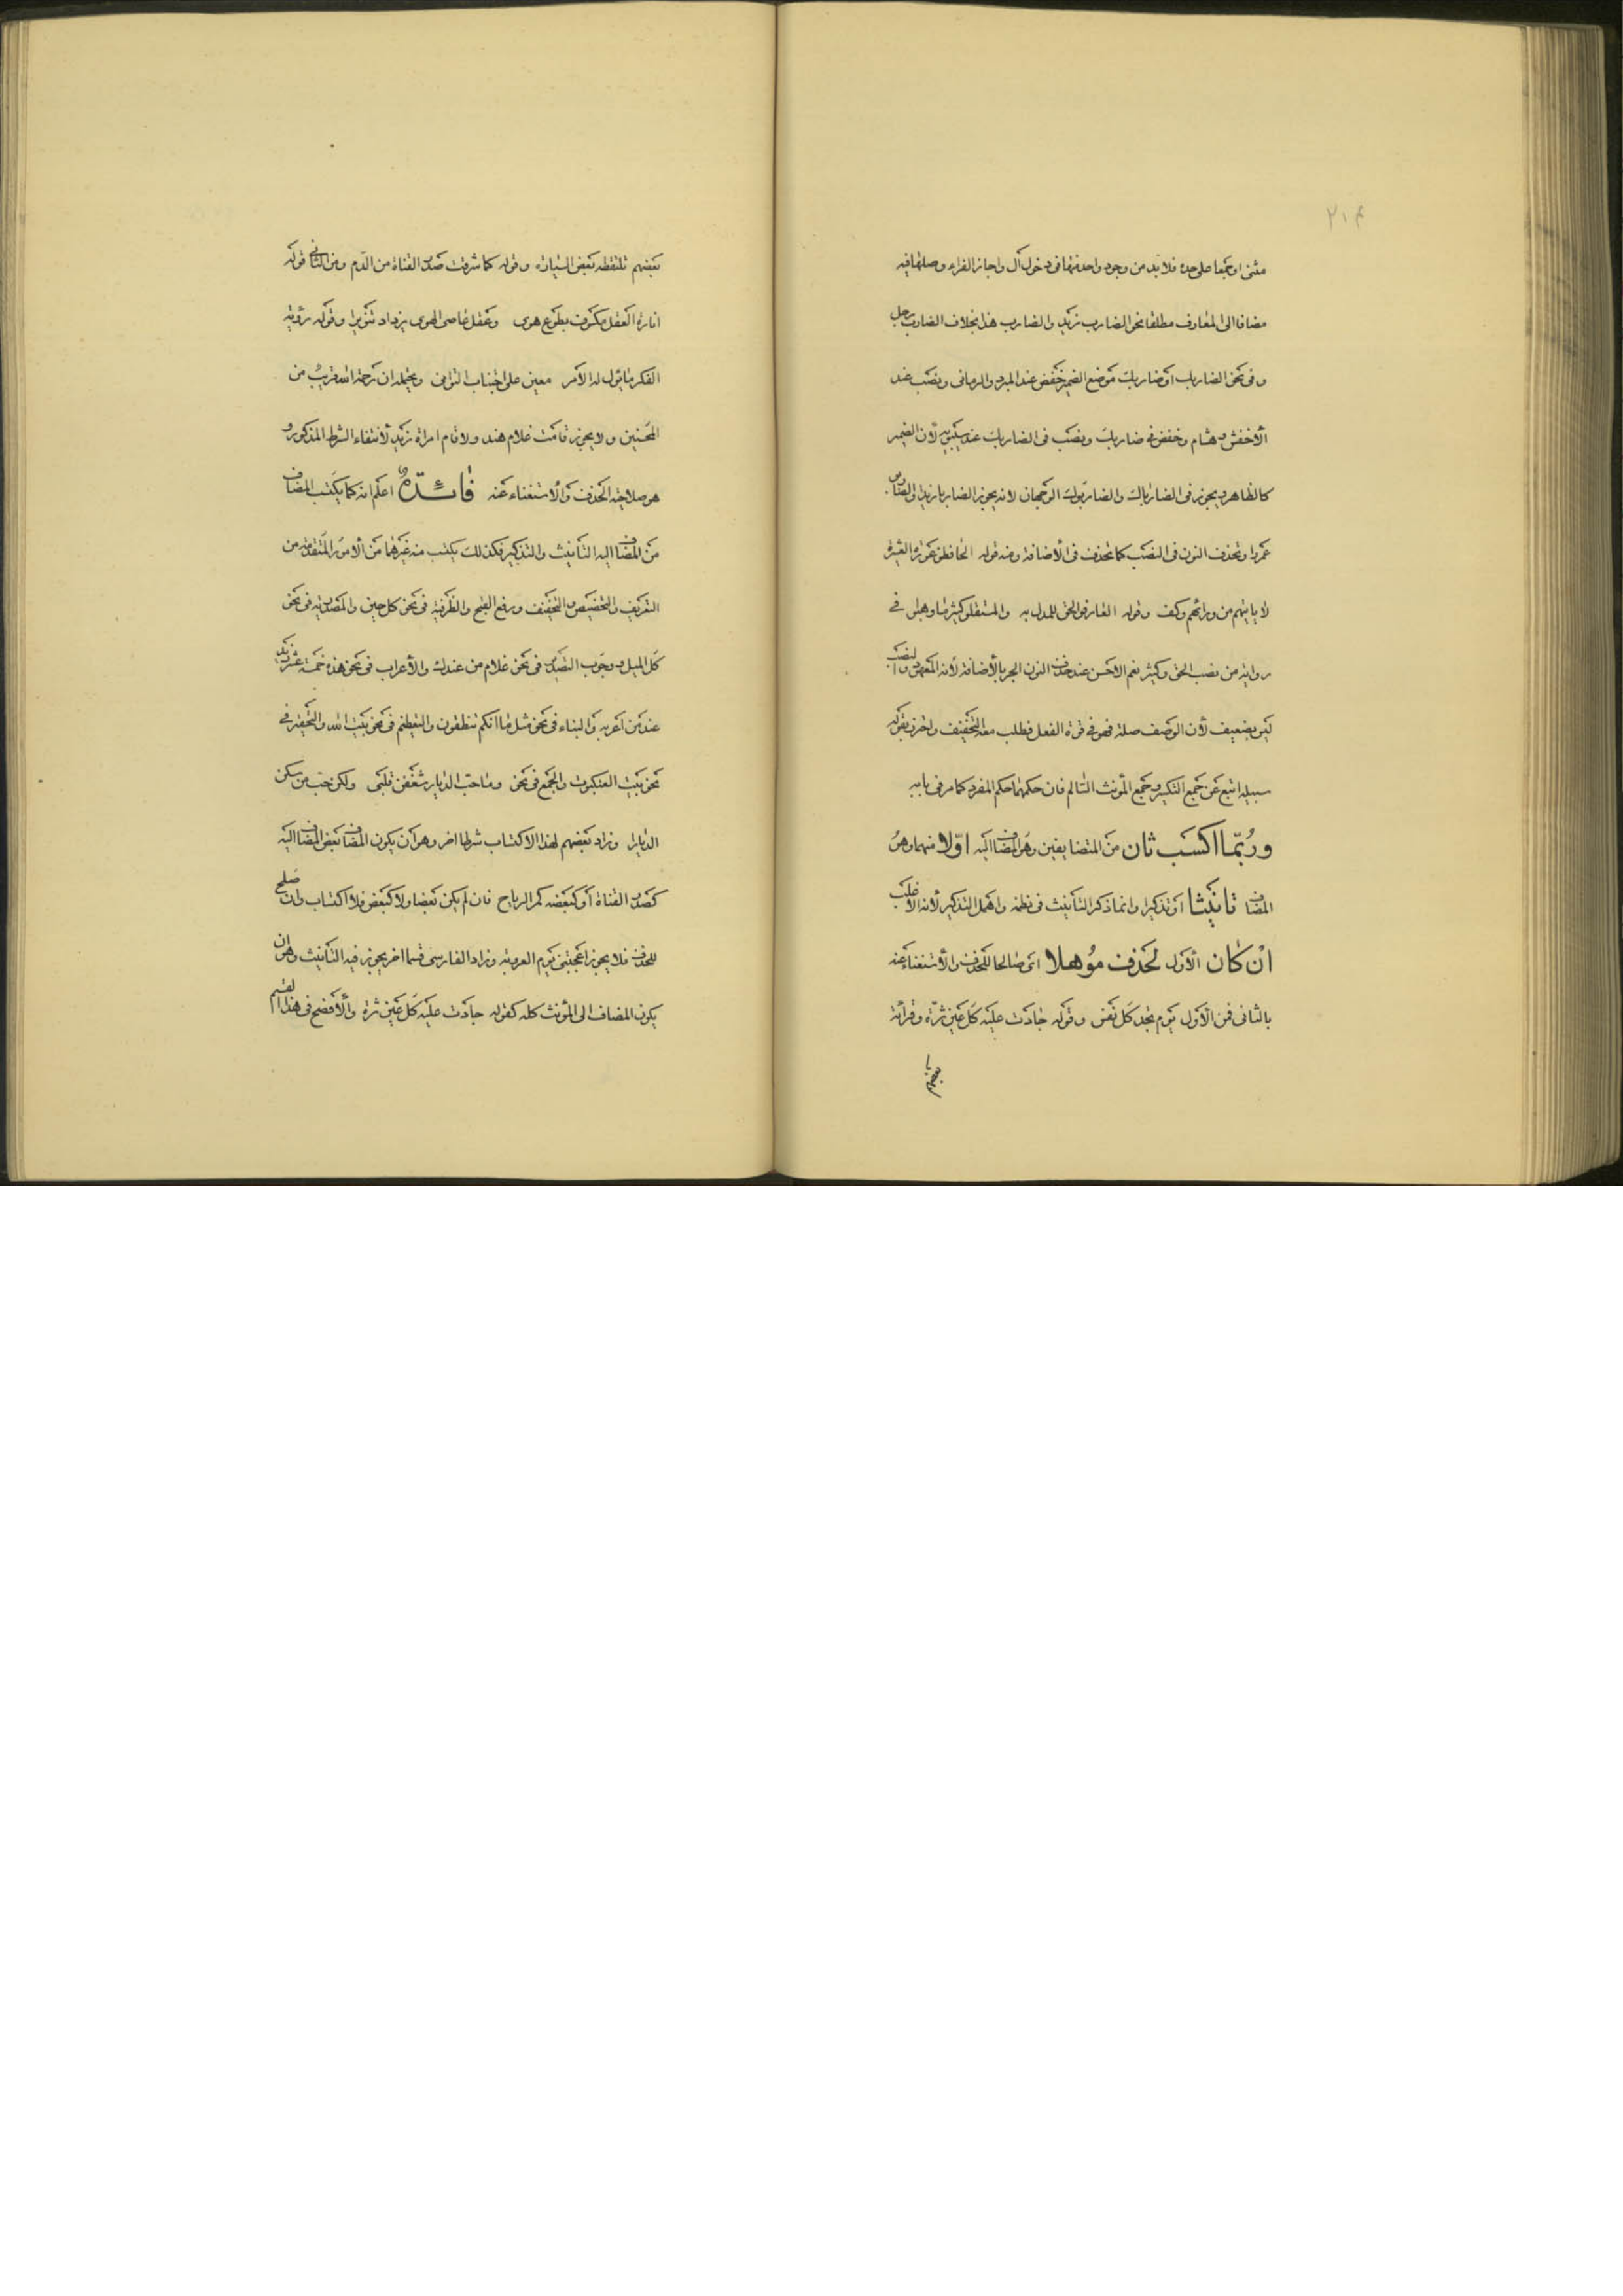 ٢١٤
مثنى او جمعا على حده فلا بد من وجود واحد منها فى دخول آل واجاز الفراء وصلها فيه
مضافا الى المعارف مطلقا نحو الضارب زيد والضارب هذا بخلاف الضارب رجل
وفى نحو الضاربك او ضاربك موضع الضمير خفض عند المبرد والرمانى ونصب عند
الأخفش وهشام وخفض فى ضاربك ونصب فى الضاربك عند سيبويه لأن الضمير
كالظاهر ويجوز فى الضارباك والضاربوك الوجهان لانه يجوز الضاربا زيد والضاربون
عمروا وتحذف النون فى النصب كما تحذف فى الأضافة ومنه قوله الحافظو عورة العشيرة
لا يأتيهم من ورائهم وكف وقوله العارفو الحق للمدل به والمستقلو كثير ما وهبوا فى
رواية من نصب الحق وكثير نعم الاحسن عند حذف النون الجر بالأضافة لأنه المعهود والنصب
ليس بضعيف لأن الوصف صلة فهو فى قوة الفعل فطلب معه التخفيف واحترز بقوله
سبيله اتبع عن جمع التكسير وجمع المؤنث السالم فان حكمهما حكم المفرد كما مر فى بابه
وربما اكسب ثان من المتضايفين وهو المضاف اليه اوّلا منهما وهو
المضاف تأنيثا او تذكيرا وانما ذكر التأنيث فى نظمه واهمل التذكير لأنه الاغلب
ان كان الأول لحذف موهلا اى صالحا للحذف والأستغناء عنه
بالثانى فمن الأول يوم تجد كل نفس وقوله جادت عليه كل عين ثرة وقرائة
بعضهم
بعضهم تلتقطه بعض السيارة وقوله كما شرقت صدر القناة من الدم ومن الثانى قوله
انارة العقل مكسوف بطوع هوى وعقل عاصى الهوى يزداد تنويرا وقوله رؤية
الفكر ما يؤل له الأمر معين على اجتناب التوانى ويحتمله ان رحمة الله قريب من
المحسنين ولا يجوز قامت غلام هند ولا قام امراة زيد لأنتفاء الشرط المذكور و
هو صلاحية الحذف والأستغناء عنه فائدة اعلم انه كما يكتسب المضاف
من المضاف اليه التأنيث والتذكير فكذلك يكتسب منه غيرهما من الأمور المتقدمة من
التعريف والتخصيص والتخفيف ورفع القبح والظرفية فى نحو كل حين والمصدرية فى نحو
كل الميل ووجوب التصدر فى نحو غلام من عندك والأعراب فى نحو هذه خمسة عشر زيد
عند من اعربه والبناء فى نحو مثل ما انكم تنطقون والتعظيم فى نحو بيت الله والتحقير فى
نحو بيت العنكبوت والجمع فى نحو وما حب الديار شغفن قلبى ولكن حب من سكن
الديارا وزاد بعضهم لهذا الاكتساب شرطا اخر وهو ان يكون المضاف بعض المضاف اليه
كصدر القناة او كبعضه كمر الرياح فان لم يكن بعضا ولا كبعض فلا اكتساب وان صلح
للحذف فلا يجوز اعجبتنى يوم العروبة وزاد الفارسى قسما اخر يجوز فيه التأنيث وهو ان
يكون المضاف الى المؤنث كله كقوله جادت عليه كل عين ثرة والأفصح فى هذا القسم